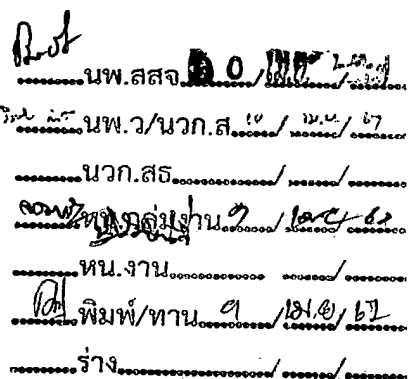 นพ.สสจ. 10 / เม.ย. /
นพ.ว/นวก.ส. 10 / เม.ย. / 67
นวก.สธ. / /
หน.กลุ่มงาน 9 / เม.ย. / 67
หน.งาน / /
พิมพ์/ทาน 9 / เม.ย. / 67
ร่าง / /